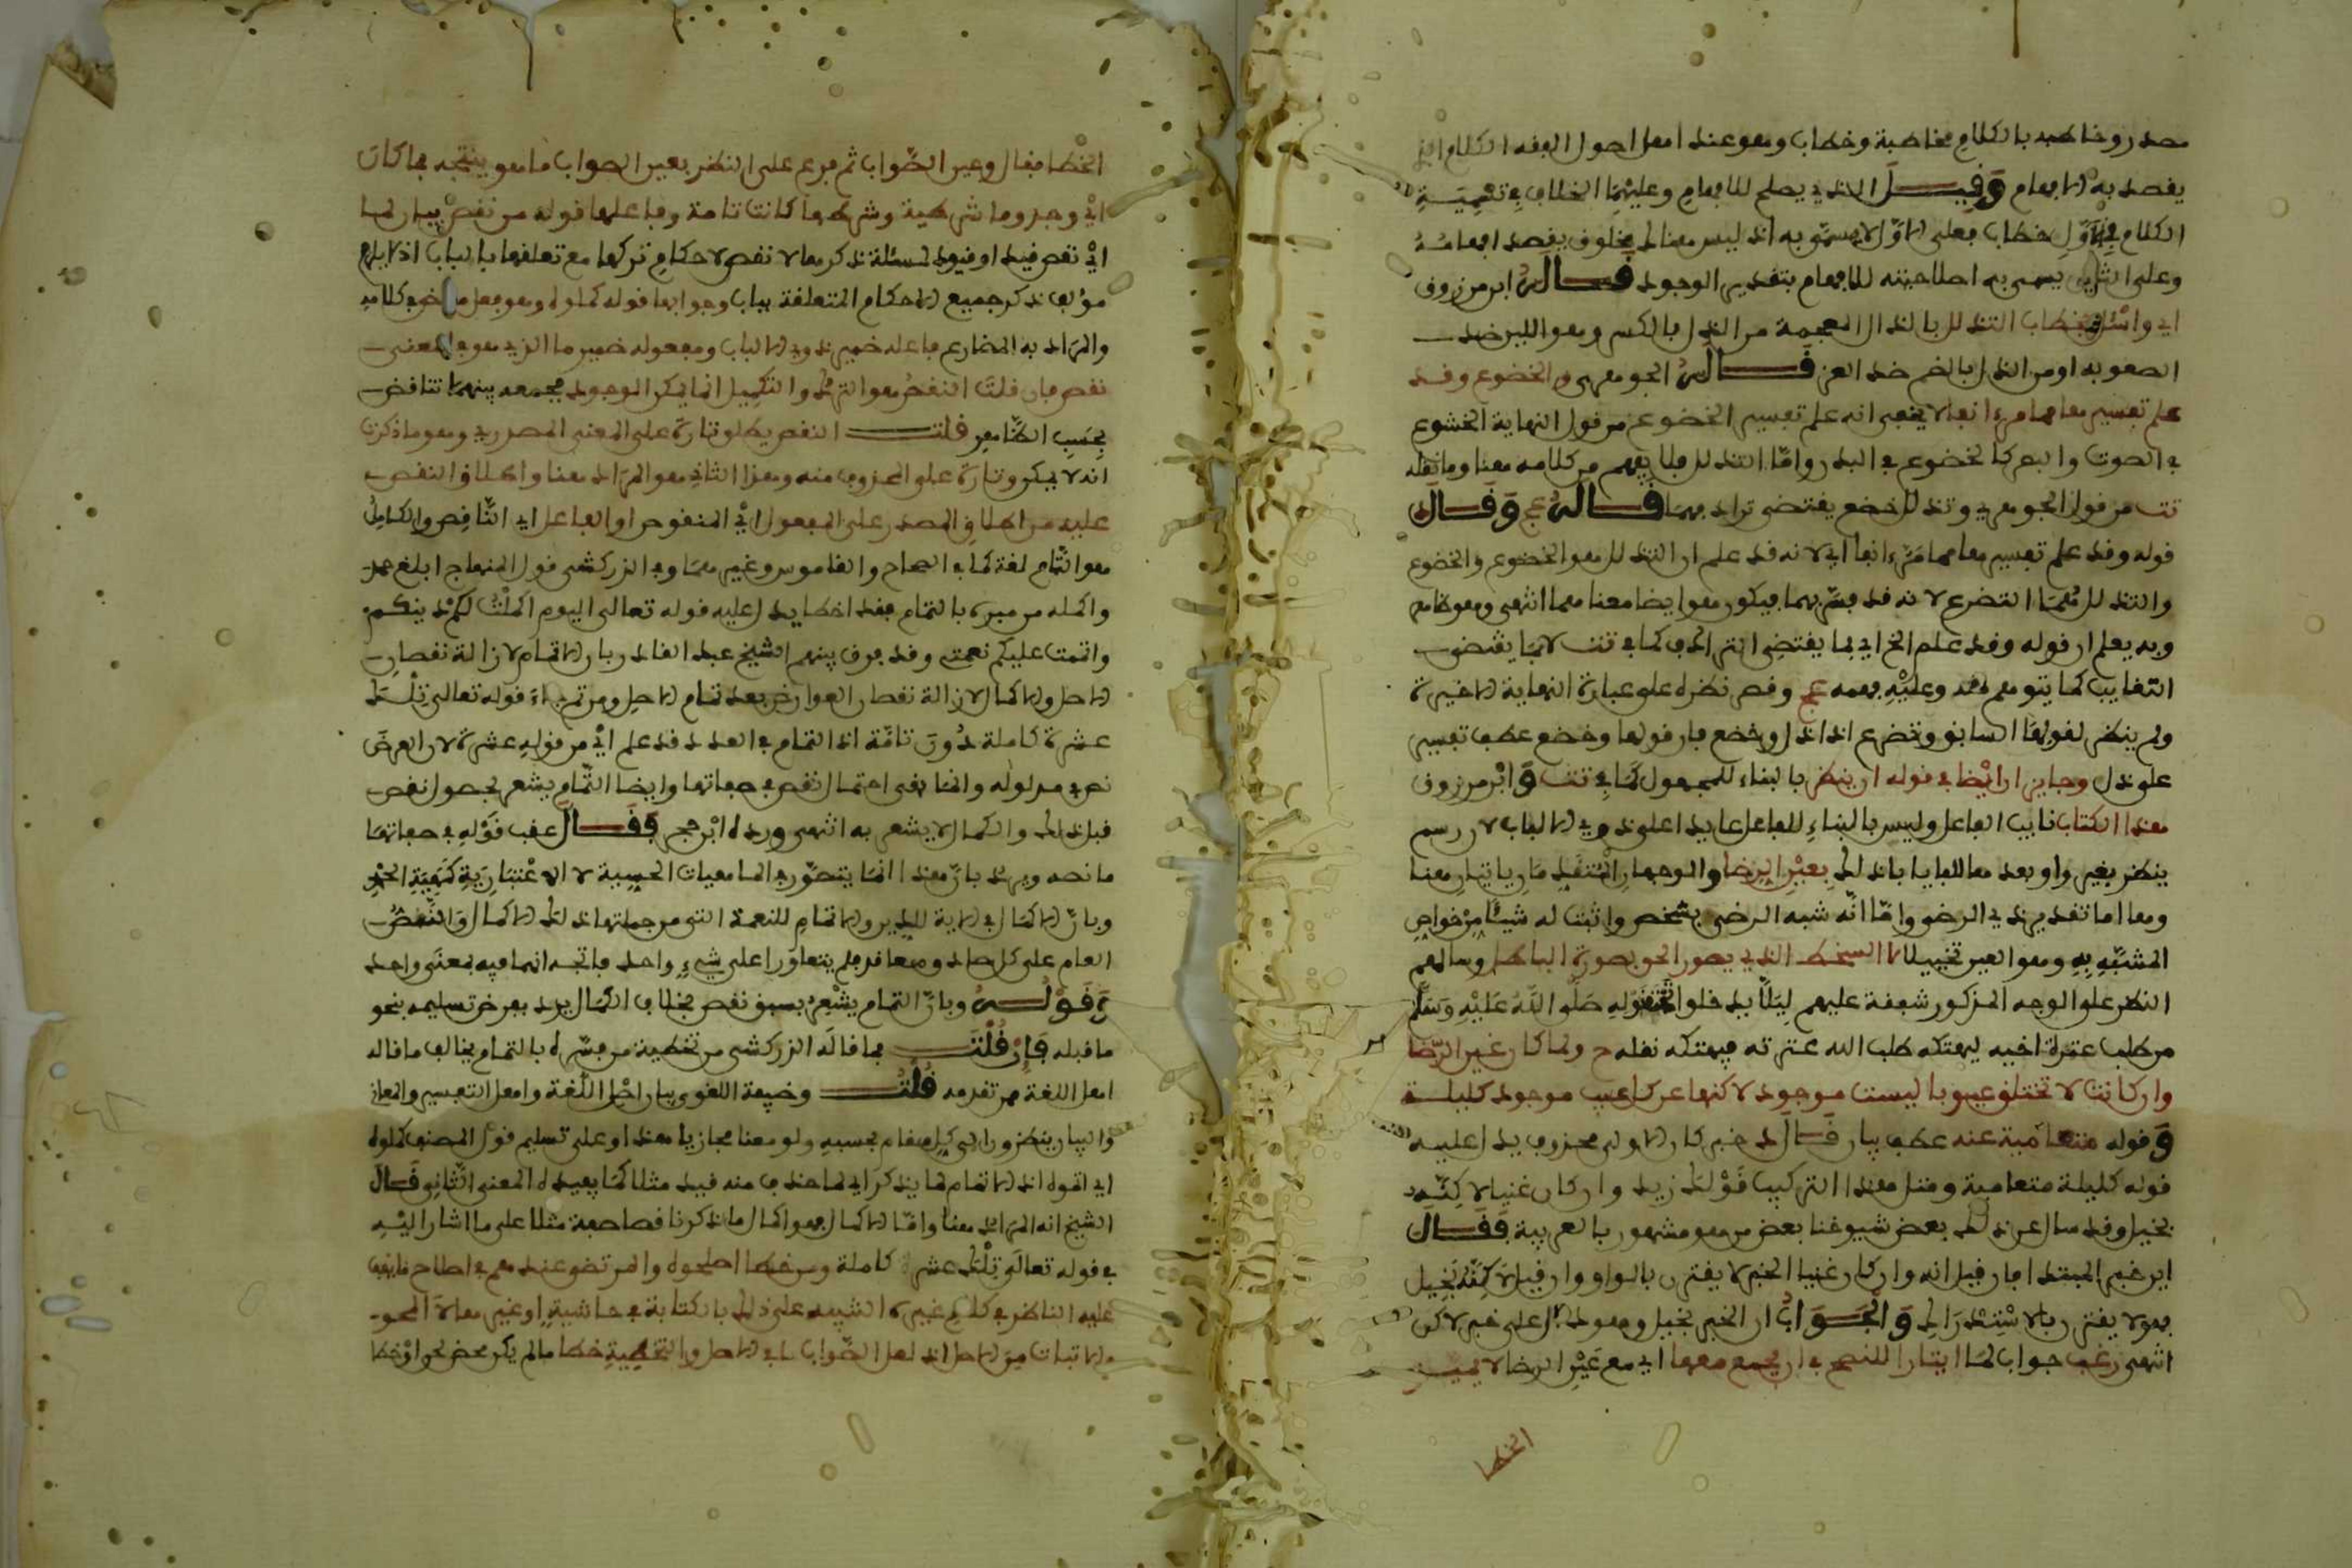 مصدر وخاطبه بالكلام مخاطبة وخطاب وهو عند اهل اصول الفقه الكلام الذي
يقصد به الافهام وَقِيــلَ الذي يصلح للافهام وعليهما الخلاف في تسمية
الكلام في الازل خطاب فعلى الاول لا يسمى به اذ ليس هناك مخلوق يقصد افهامه
وعلى الثاني يسمى به لصلاحيته للافهام بتقدير الوجود قــالــه ابن مرزوق
اي واسئل بخطاب التذلل بالذال المعجمة من الذل بالكسر وهو اللين ضد
الصعوبة او من الذل بالضم ضد العز قــالــه الجوهري والخضوع وقد
علم تفسيرهما مما مر انفا لا يخفى انه علم تفسير الخضوع من قول النهاية الخشوع
في الصوت والبصر كالخضوع في البدن واما التذلل فلا يفهم من كلامه هنا وما نقله
تت من قول الجوهري وتذلل خضع يقتضي ترادفهما قــالــه عج وَقــالَ
قوله وقد علم تفسيرهما مما مر انفا اي لانه قد علم ان التذلل هو الخضوع والخضوع
والتذلل هما التضرع لانه قد فسر بهما فيكون هو ايضا معناهما انتهى وهو ظاهر
وبه يعلم ان قوله وقد علم الخ اي بما يقتضي الترادف كما في تت لا بما يقتضي
التغاير كما يتوهم وعليه فهمه عج وقصر نظره على عبارة النهاية الاخيرة
ولم ينظر لقولها السابق وتضرع اذا ذل وخضع فان قولها وخضع عطف تفسير
على ذل وجاير ان ايضا في قوله ان ينظر بالبناء للمجهول كما في تت وَابْن مرزوق
هذا الكتاب نايب الفاعل وليس بالبناء للفاعل عايدا على ذوي الالباب لان رسم
ينظر بغير واو بعد هاء للباب ذلك بعين الرضا والوجهان ياتيان هنا
وهما اما تقديره ذي الرضى واما انه شبه الرضى بشخص واثبت له شيئا من خواص
المشبه به وهو العين تخييلا لا السخط الذي يصور الحق بصورة الباطل وسالهم
النظر على الوجه المذكور شفقة عليهم ليلا يدخلوا تحت قوله صَلَّى اللَّهُ عَلَيْهِ وَسَلَّمَ
من طلب عثرة اخيه ليهتكه طلب الله عثرته فيهتكه نقله ح ولما كان عين الرضا
وان كانت لا تختلق عيوبا ليست موجودة لاكنها عن كل عيب موجود كليلة
وَقوله متعامية عنه عطف بيان قــالَ خبر كان الاولى محذوف يدل عليه
قوله كليلة متعامية ومثل هذا التركيب قَوْلُك زيد وان كان غنيا لاكنه
بخيل وقد سال عن ذلك بعض شيوخنا بعض من هو مشهور بالعربية فَقَــالَ
اين خبر المبتدا فان قيل انه وان كان غنيا الخبر لا يقترن بالواو وان قيل لاكنه بخيل
فهو لا يقترن بالاستدراك وَالجَــوَابُ ان الخبر بخيل وهو دال على خبر لاكن
انتهى رغب جواب لما ايثارا للنصح في ان يجمع معها اي مع عَيْنِ الرضا لا يميز
الخطا
الخطا فقال وعين الصواب ثم فرع على النظر بعين الصواب ما هو ينتجه فما كان
اي وجد وما شرطية وشرطها كانت تامة وفاعلها قوله من نقص بيان لما
اي نقص قيد او قيود لمسئلة ذكرها لا نقص لاحكام تركها مع تعلقها بالباب اذ لا يلزم
مؤلف ذكر جميع الاحكام المتعلقة بباب وجوابها قوله كملوه وهو فعل ماض في كلامه
والمراد به المضارع فاعله ضمير ذوي الالباب ومفعوله ضمير ما الذي هو في المعنى
نقص فان قلت النقص هو الترك والتكميل انما يكون لموجود فجمعه بينهما تناقض
بحسب الظاهر قلــت النقص يطلق تارة على المعنى المصدري وهو ما ذكرت
انه لا يكون وتارة على المحذوف منه وهذا الثاني هو المراد هنا واطلاق النقص
عليه من اطلاق المصدر على المفعول اي المنقوص او الفاعل اي الناقص والكامل
هو التام لغة كما في الصحاح والقاموس وغيرهما وفي الزركشي قول المنهاج ابلغ حمد
واكمله من فسره بالتمام فقد اخطا يدل عليه قوله تعالى اليوم اكملت لكم دينكم
واتممت عليكم نعمتي وقد فرق بينهم الشيخ عبد القادر بان الاتمام لازالة نقصان
الاصل والاكمال لازالة نقصان العوارض بعد تمام الاصل ومن ثم جاء قوله تعالى تِلْكَ
عشرة كاملة دُونَ تامّة اذ التمام في العدد قد علم اي من قوله عشرة لان العرض
نص في مدلوله وانما بقي احتمال نقص في صفاتها وايضا التمام يشعر بحصول نقص
قبل ذلك والكمال لا يشعر به انتهى ورده ابْن حجر فَقَــالَ عقب قَوْلِه في صفاتها
ما نصه ويرد بان هذا انما يتصور في الماهيات الحسية لا الاعتبارية كنهية الحج
وبان الاكمال في الاية للدين والاتمام للنعمة التي من جملتها ذلك الاكمال والنقص
العام على كل ضاد وضعا فلم يتعاورا على شيء واحد فاتجه انهما فيه بمعنى واحد
وَقَوْلُــهُ وبان التمام يشعر بسبق نقص بخلاف الكمال يرد بفرض تسليمه بنحو
ما قبله فَإِنْ قُلْتَــ فما قاله الزركشي من تخطية من فسره بالتمام يخالف ما قاله
اهل اللغة مر تقدمه قُلْتُــ وضيعة اللغوي بيان اصل اللغة واهل التفسير والمعاني
والبيان ينظرون الى كل مقام بحسبه ولو معنا مجازيا هذا وعلى تسليم قول المصنف كملوه
اي اتموه اذ الاتمام لما يذكر اي لما حذف منه قيد مثلا كما يفيده المعنى الثاني قَــالَ
الشيخ انه المراد هنا واما الاكمال فهو اكمال ما ذكر ناقصا صفة مثلا على ما اشار اليه
في قوله تعالى تِلْكَ عشرة كاملة ومن خطا اصلحوه والمرتضى عندهم في اصلاح ما يقف
عليه الناظر في كلام غيره التنبيه على ذلك بالكتابة في حاشية او غيرها لا المحو
والاثبات من الاصل اذ لعل الصواب ما في الاصل والتخطية خطا ما لم يكن محض لحن او خطا